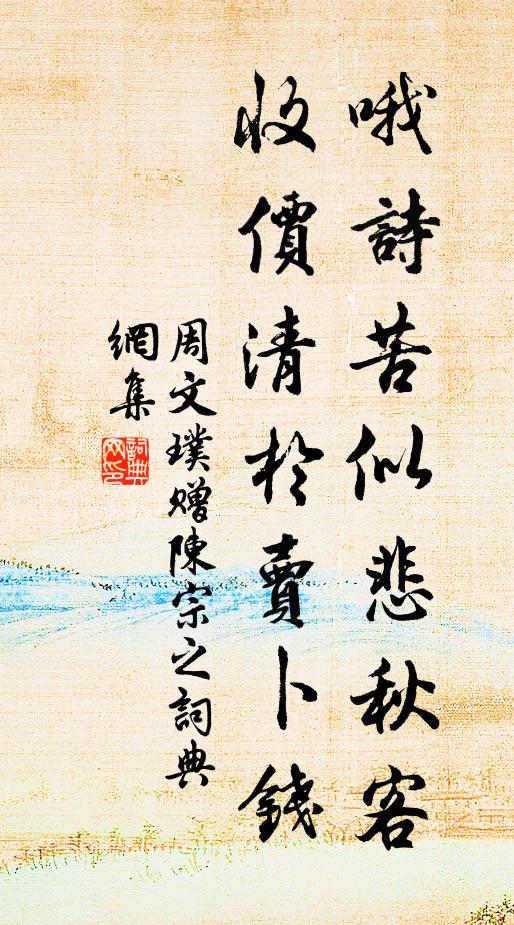 哦詩苦似悲秋客
收價清於賣卜錢
周文璞贈陳宗之詞典
網集